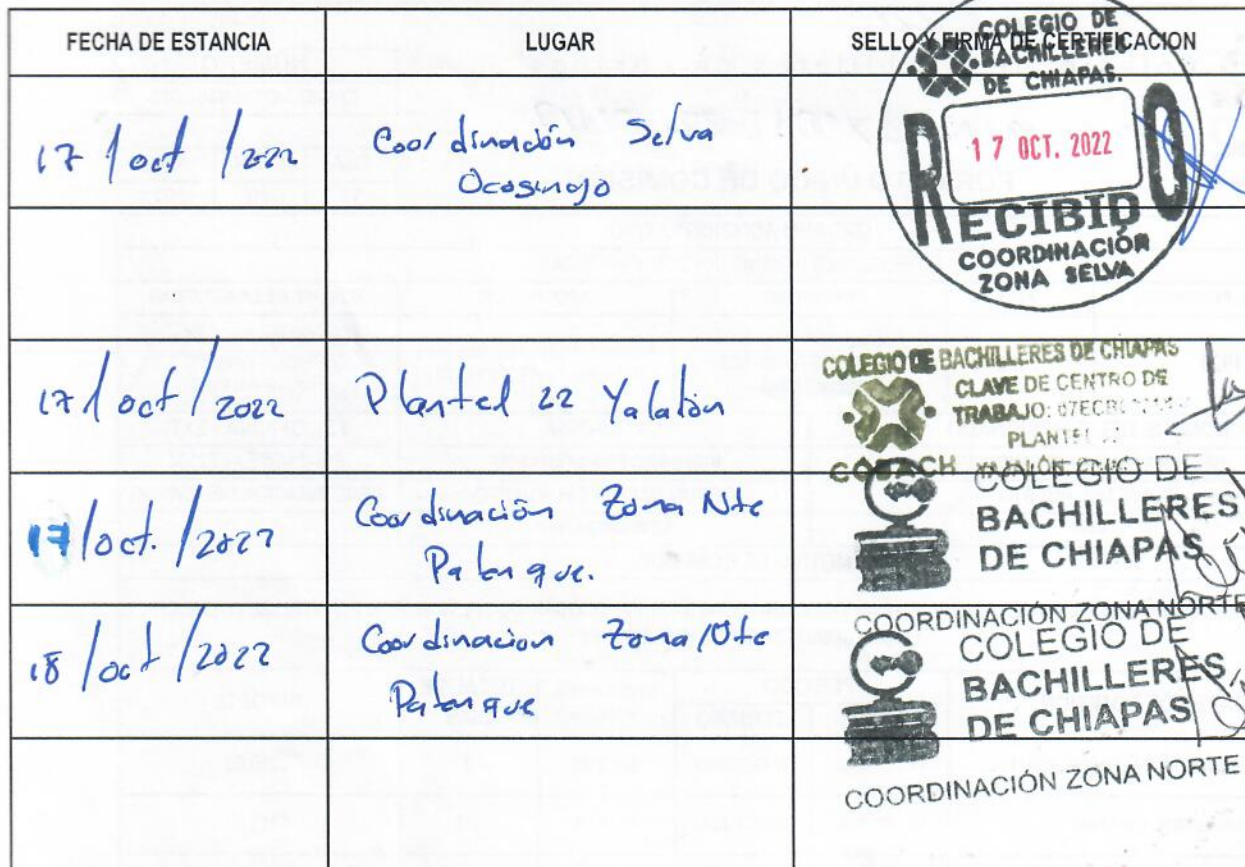 FECHA DE ESTANCIA
LUGAR
SELLO Y FIRMA DE CERTIFICACION
17 / oct / 2022
Coordinación Selva
Ocosingo
COLEGIO DE
BACHILLERES
DE CHIAPAS.
17 OCT. 2022
RECIBIDO
COORDINACIÓN
ZONA SELVA
17 / oct / 2022
Plantel 22 Yalalón
COLEGIO DE BACHILLERES DE CHIAPAS
CLAVE DE CENTRO DE
TRABAJO:
PLANTEL
COBACH
17/oct. /2022
Coordinación Zona Nte
Palenque.
COLEGIO DE
BACHILLERES
DE CHIAPAS
COORDINACIÓN ZONA NORTE
18 /oct /2022
Coordinacion Zona/Nte
Palenque
COLEGIO DE
BACHILLERES
DE CHIAPAS
COORDINACIÓN ZONA NORTE